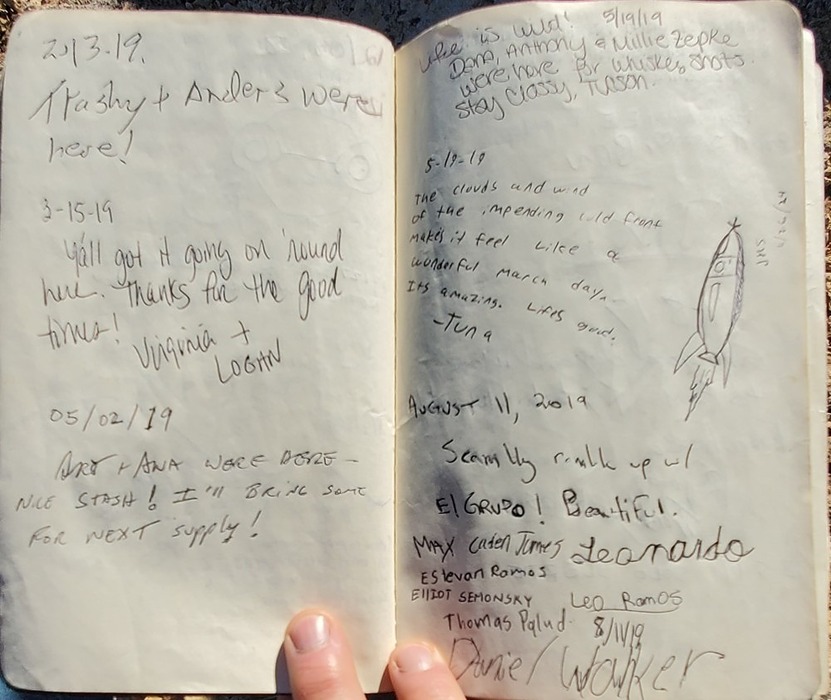 2/13.19.
Trashy + Anders were
here!
3-15-19
Y'all got it going on 'round
here. Thanks for the good
times!
Virginia +
LOGAN
05/02/19
+ ANA WERE HERE -
NICE STASH! I'll BRING SOME
FOR NEXT supply!
Life is wild! 5/19/19
Dana, Anthony & Millie Zepke
were here for whiskey shots.
Stay Classy, Tucson.
5-19-19
The clouds and wind
of the impending cold front
makes it feel like a
wonderful march day.
Its amazing. Lifes good.
-Tuna
JHS
AUGUST 11, 2019
up w/
El GRUPO! Beautiful.
MAX Caden James Leonardo
Estevan Ramos
ElliOT SEMONSKY Leo Ramos
Thomas 8/11/19
Daniel Walker